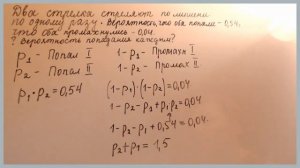 Два стрелка стреляют по мишени
по одному разу. Вероятность, что оба попали - 0,54,
что оба промахнулись - 0,04
? Вероятность попадания каждым?
P₁ - Попал I
P₂ - Попал II
P₁·P₂ = 0,54
1-P₁ - Промахн I
1-P₂ - Промах II
(1-P₁)(1-P₂) = 0,04
1-P₂-P₁+P₁P₂ = 0,04
1-P₂-P₁+0,54 = 0,04
P₂+P₁ = 1,5